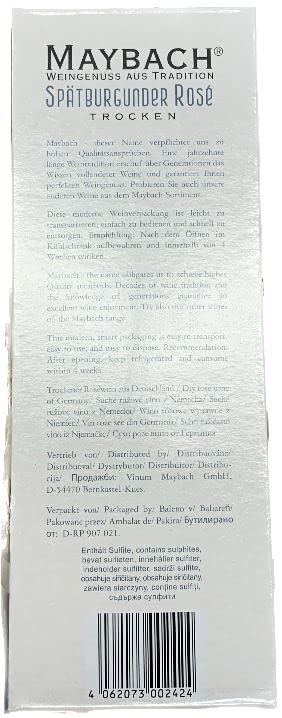 MAYBACH®
WEINGENUSS AUS TRADITION
SPÄTBURGUNDER ROSÉ
TROCKEN
Maybach - dieser Name verpflichtet uns zu
hohen Qualitätsansprüchen. Eine jahrzehnte
lange Weintradition erschuf über Generationen das
Wissen vollendeter Weine und garantiert Ihnen
perfekten Weingenuss. Probieren Sie auch unsere
anderen Weine aus dem Maybach-Sortiment.
Diese moderne Weinverpackung ist leicht zu
transportieren, einfach zu bedienen und schnell zu
entsorgen. Empfehlung: Nach dem Öffnen im
Kühlschrank aufbewahren und innerhalb von 4
Wochen trinken.
Maybach - the name obligates us to achieve higher
Quality standards. Decades of wine tradition and
the knowledge of generations guarantee
excellent wine enjoyment. Try also our other wines
of the Maybach range.
This modern, smart packaging is easy to transport,
easy to use, and easy to dispose. Recommendation:
After opening, keep refrigerated and consume
within 4 weeks.
Trockener Roséwein aus Deutschland/ Dry rose wine
of Germany/ Suché růžové víno z Německa/ Suché
ružové víno z Nemecka/ Wino różowe wytrawne z
Niemiec/ Vin rose sec din Germania/ Suho rozé
vino iz Njemačke/ Сухо розе вино от Германия
Vertrieb von/ Distributed by/ Distribuováno/
Distribuoval/ Dystrybutor/ Distribuitor/ Distribu-
cija/ Продажби: Vinum Maybach GmbH,
D-54470 Bernkastel-Kues.
Verpackt von/ Packaged by/ Baleno v/ Baliareň/
Pakowane przez/ Ambalat de/ Pakira/ Бутилирано
от: D-RP 907 021.
Enthält Sulfite, contains sulphites,
bevat sulfieten, innehåller sulfiter,
indeholder sulfitter, sadrži sulfite,
obsahuje siřičitany, obsahuje siričitany,
zawiera siarczyny, conține sulfiți,
съдържа сулфити
4 062073 002424